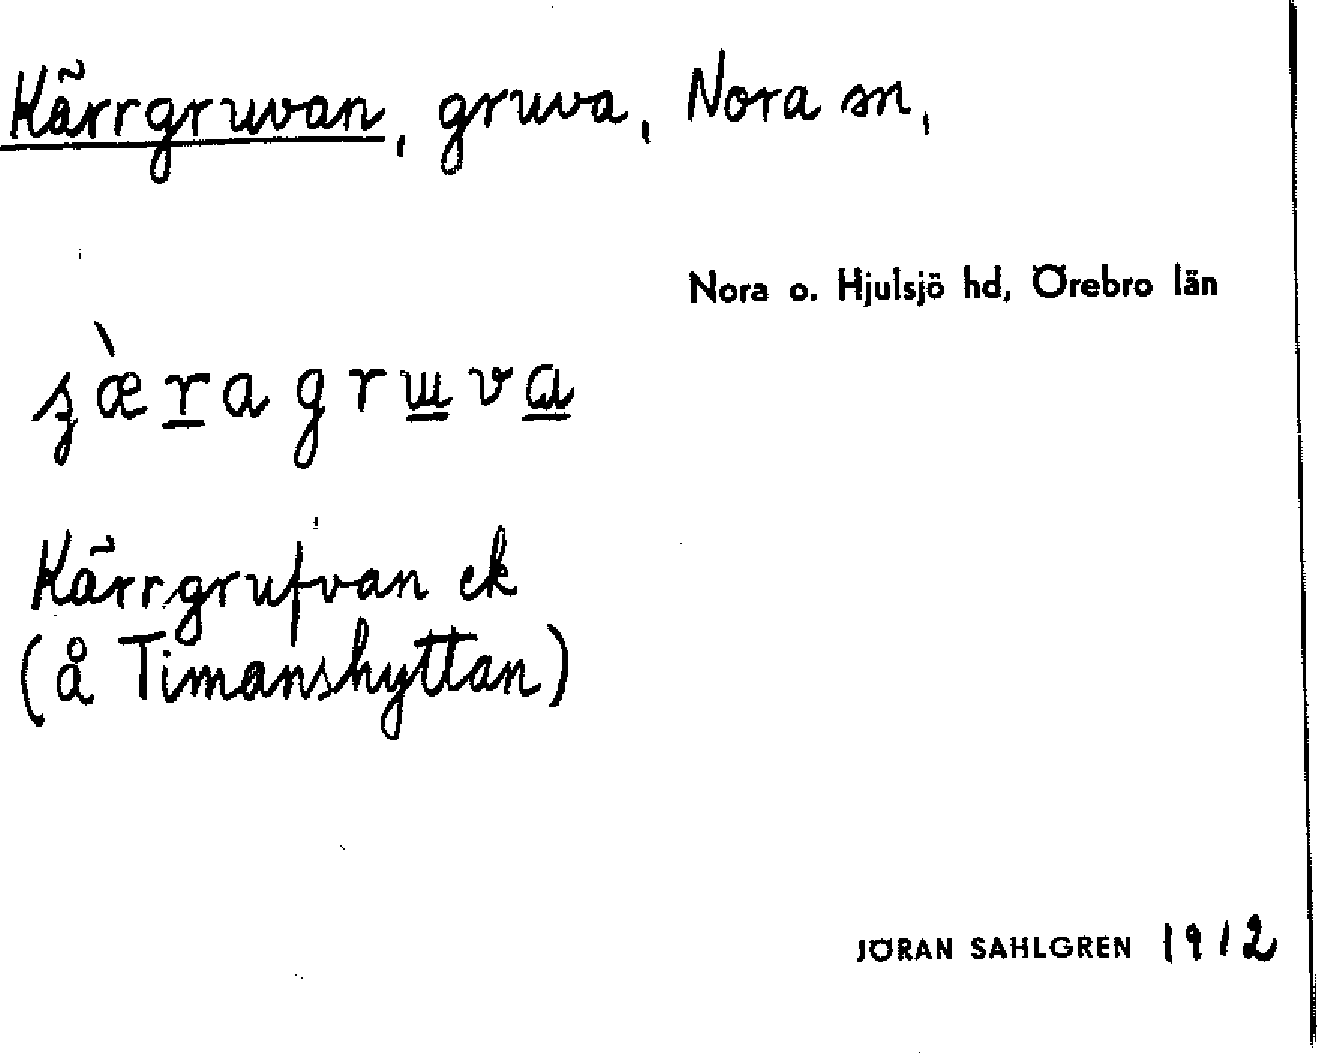 Kärrgruvan, gruva, Nora sn,
Nora o. Hjulsjö hd, Örebro län
Kärrgrufvan ek
(å Timanshyttan)
JÖRAN SAHLGREN 1912